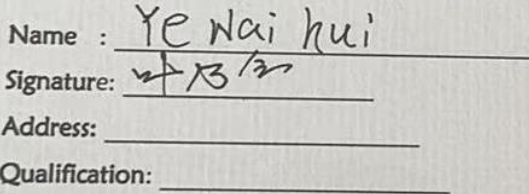 Name : Ye Nai hui
Signature: 叶乃
Address:
Qualification: